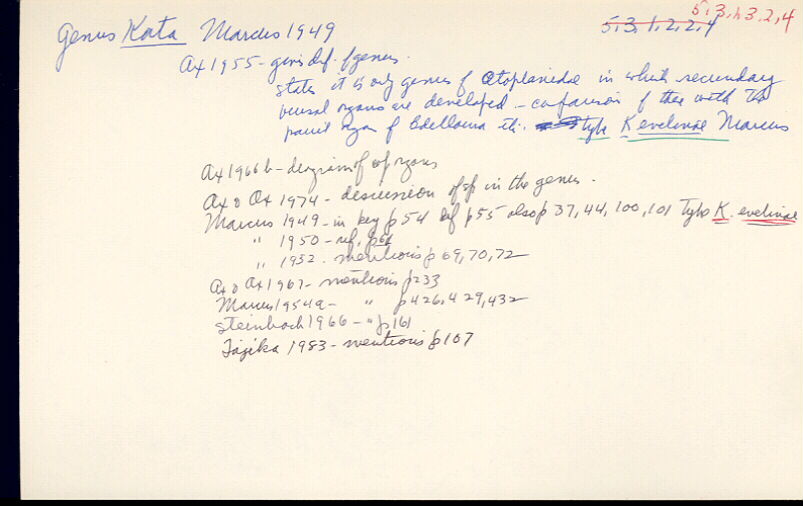 5.3.1.3.2.4
5.3.1.2.2.4
Genus Kata Marcus 1949
Ax 1955 - gives def. of genus.
states it is only genus of Otoplanidae in which secundary
bursal organs are developed - comparison of these with the
organ of Bdelloura etc. type K evelinae Marcus
Ax 1966b - diagram of cop organs
Ax & Ax 1974 - discussion of sp in the genus.
Marcus 1949 - in key p 54 def p 55 also p 37, 44, 100, 101 Type K. evelinae
" 1950 - ref. p
" 1952 - mentions p 69, 70, 72
Ax & Ax 1967 - mentions p 33
Marcus 1954a - " p 426, 429, 432
Steinbach 1966 - " p 161
Tajika 1983 - mentions p 107